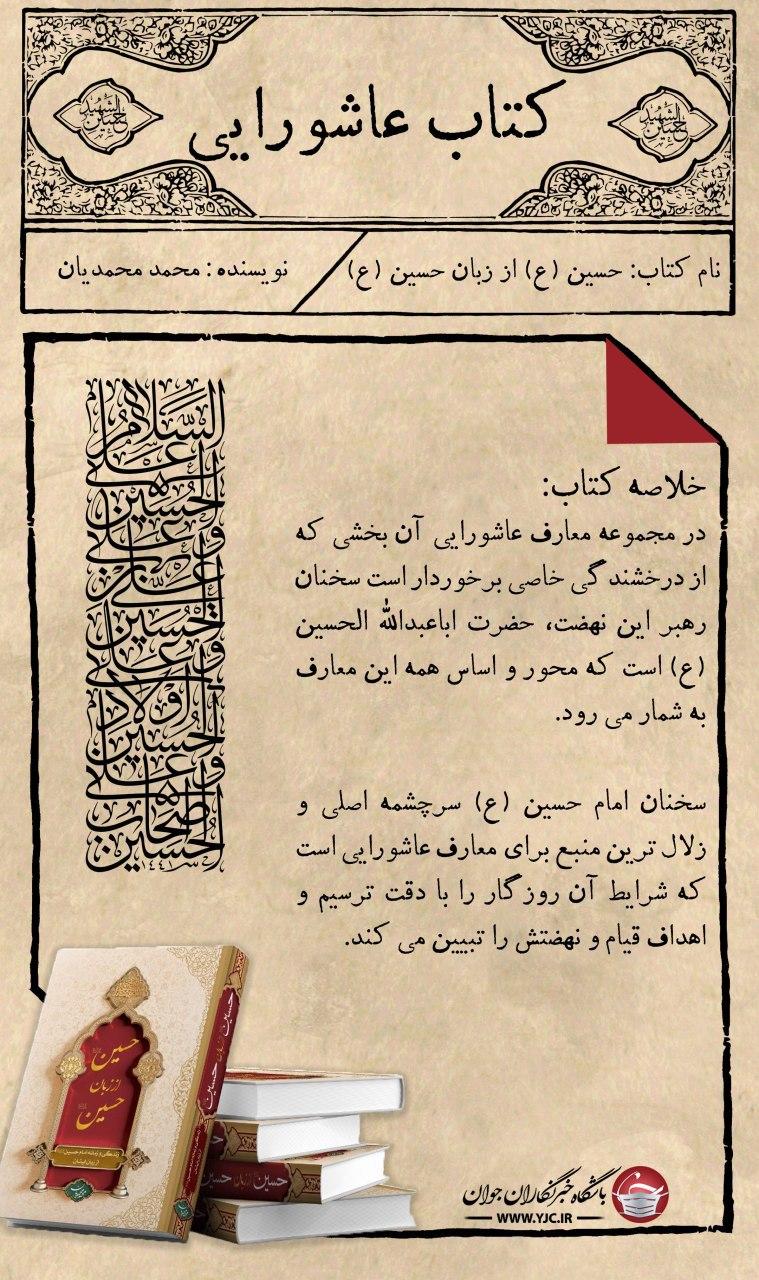 کتاب عاشورایی
نام کتاب: حسین (ع) از زبان حسین (ع) / نویسنده: محمد محمدیان
السلام
علی
الحسین
و علی
علی بن
الحسین
و علی
اولاد
الحسین
و علی
اصحاب
الحسین
۱۴۴۱
خلاصه کتاب:
در مجموعه معارف عاشورایی آن بخشی که
از درخشندگی خاصی برخوردار است سخنان
رهبر این نهضت، حضرت اباعبدالله الحسین
(ع) است که محور و اساس همه این معارف
به شمار می رود.
سخنان امام حسین (ع) سرچشمه اصلی و
زلال ترین منبع برای معارف عاشورایی است
که شرایط آن روزگار را با دقت ترسیم و
اهداف قیام و نهضتش را تبیین می کند.
حسین
از زبان
حسین
زندگی و زمانه امام حسین
از زبان ایشان
حسین از زبان حسین
حسین از زبان حسین
باشگاه خبرنگاران جوان
WWW.YJC.IR